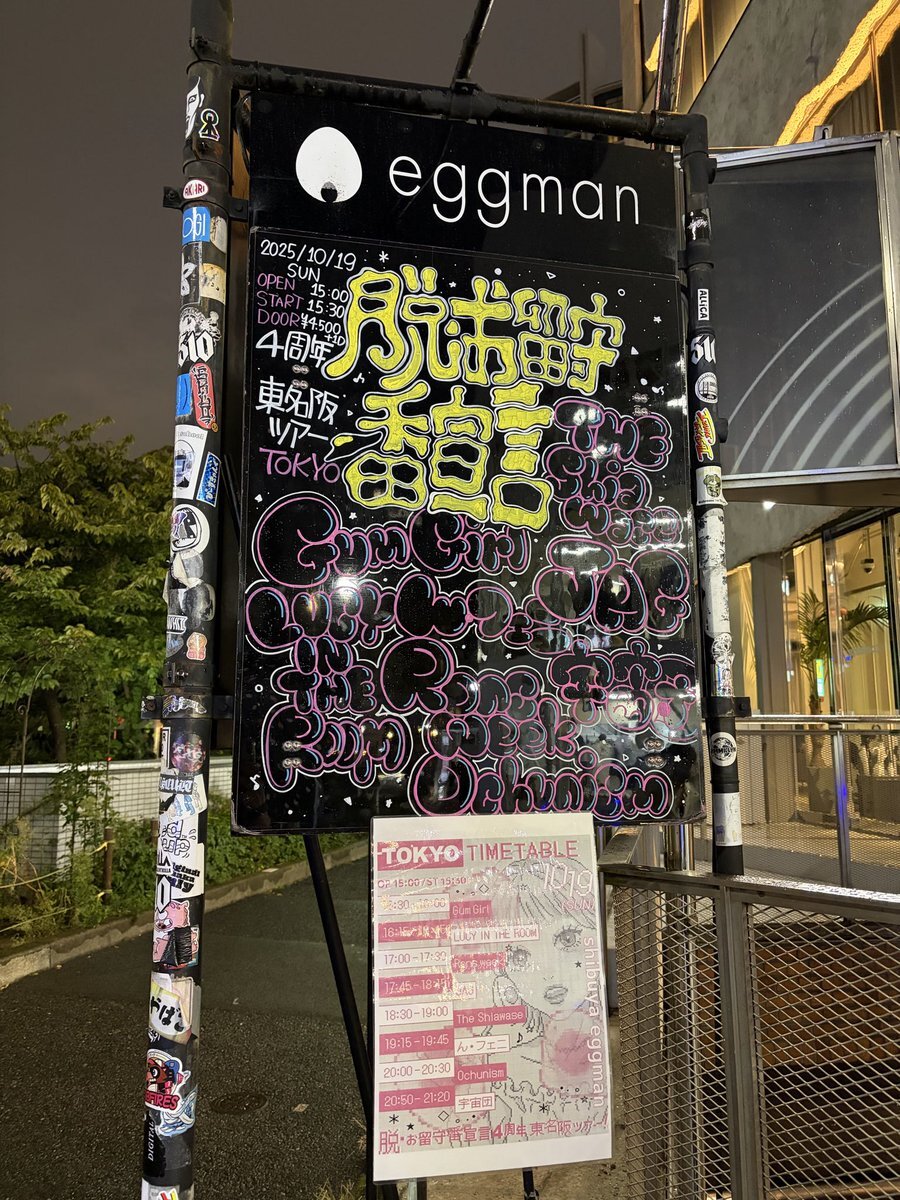 eggman
2025/10/19
SUN
OPEN 15:00
START 15:30
DOOR ¥4,500
+1D
4周年
東名阪
ツアー
TOKYO
脱・お留守
番宣言
THE
Shia
wase
Gum Girl
LUCY
IN
THE
ROOM
JAG
Rens
week
宇宙団
Ochunism
TOKYO TIMETABLE
OP 15:00/ST 15:30
1019
(SUN)
Gum Girl
LUCY IN THE ROOM
17:00-17:30 Rens week
17:45-18:15 JAG
18:30-19:00 The Shiawase
19:15-19:45 ん・フェニ
20:00-20:30 Ochunism
20:50-21:20 宇宙団
shibuya eggman
脱・お留守番宣言4周年 東名阪ツアー!
ALICA
DIGITAL